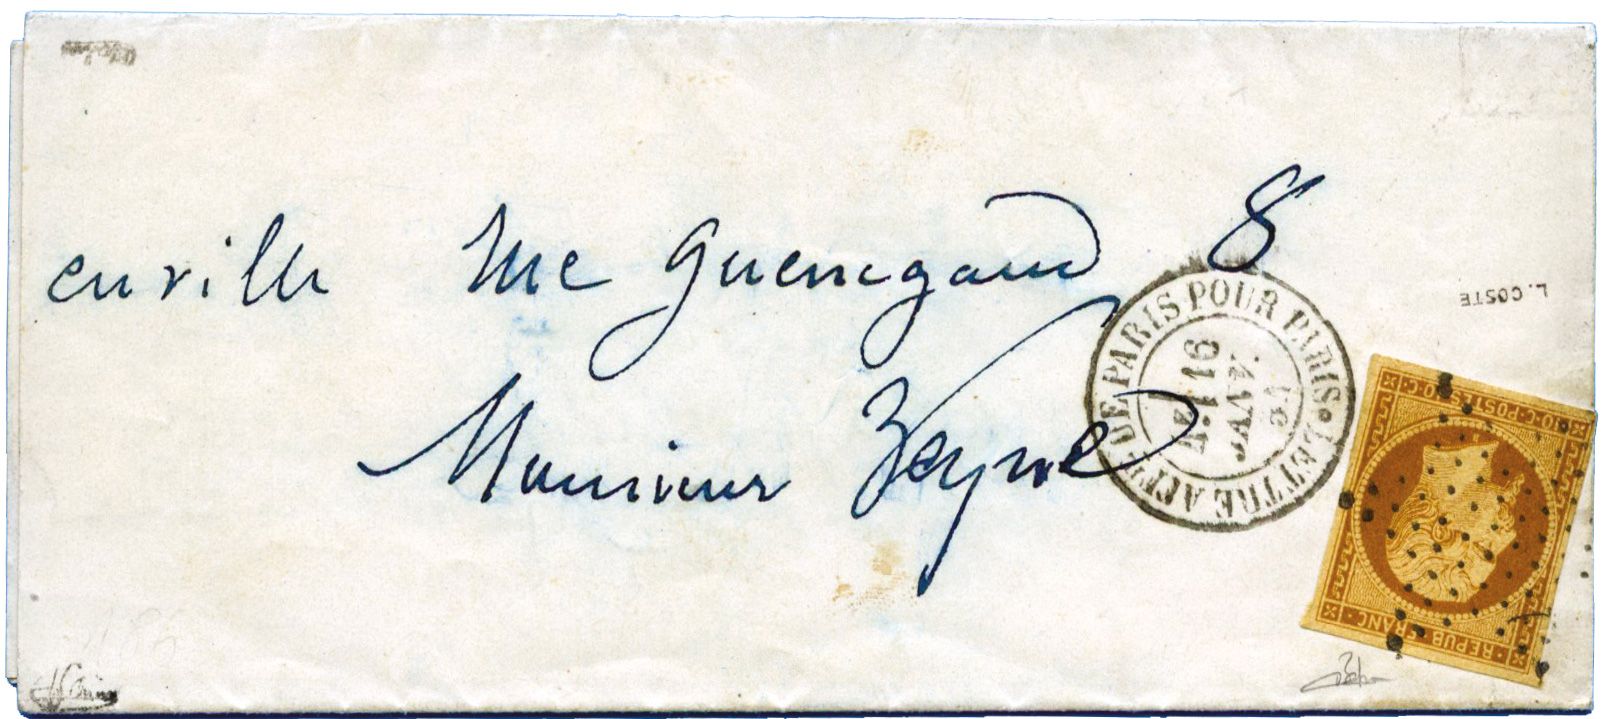 en ville rue guenegaud 8
Monsieur Zeyne
DE PARIS POUR PARIS • LETTRE AFF.
16
L. COSTE
10·C·POSTES·10·C·
REPUB·FRANC·